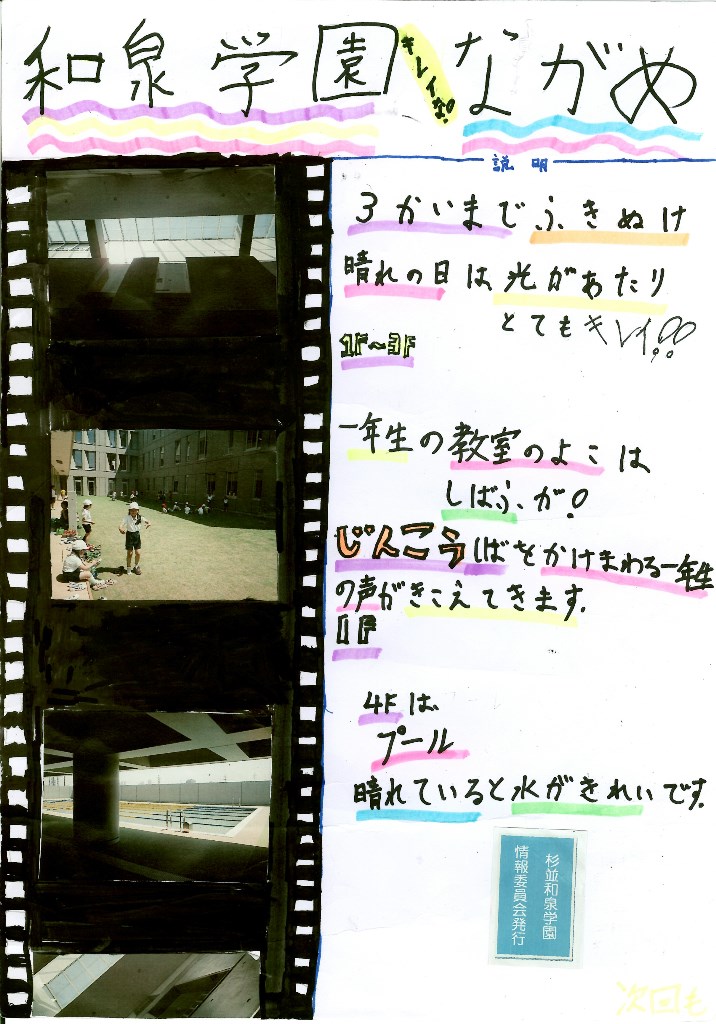 和泉学園キレイな!ながめ
説明
3かいまでふきぬけ
晴れの日は光があたり
とてもキレイ!!
1F～3F
一年生の教室のよこは
しばふが!
じんこうしばをかけまわる一年生
の声がきこえてきます.
1F
4Fは
プール
晴れていると水がきれいです.
杉並和泉学園
情報委員会発行
次回も